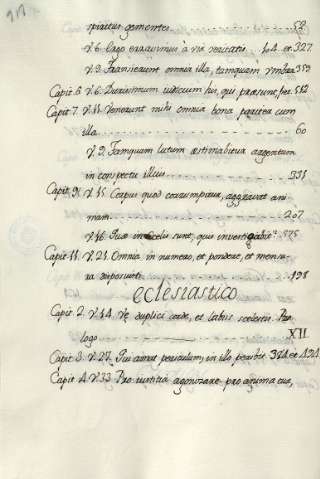 spiritus gementes . . . . . . . . . . 52
V. 6. Ergo erravimus à via veritatis . 104. et 327
V. 9. Transierunt omnia illa, tamquam vmbra 353
Capit. 6. V. 6. Durissimum iudicium his, qui presunt, 
Capit. 7. V. 11. Venerunt mihi omnia bona pariter cum
illa . . . . . . . . . . 60
V. 9. Tamquam lutum æstimabitur argentum
in conspectu illius . . . . . . . . . . 331
Capit. 9. V. 15. Corpus quod corrumpitur, aggravat ani-
mam . . . . . . . . . . 207
V. 16. Quæ in Cœlis sunt, quis investigabit 
Capit. 11. V. 21. Omnia in numero, et pondere, et mensu-
ra disposuisti . . . . . . . . . . 198
Eclesiastico
Capit. 2. V. 14. Væ duplici corde, et labiis scelestis. Pro-
logo . . . . . . . . . . XII
Capit. 3. V. 27. Qui amat periculum, in illo peribit 
Capit. 4. V. 33. Pro iustitia agonizare pro anima tua,